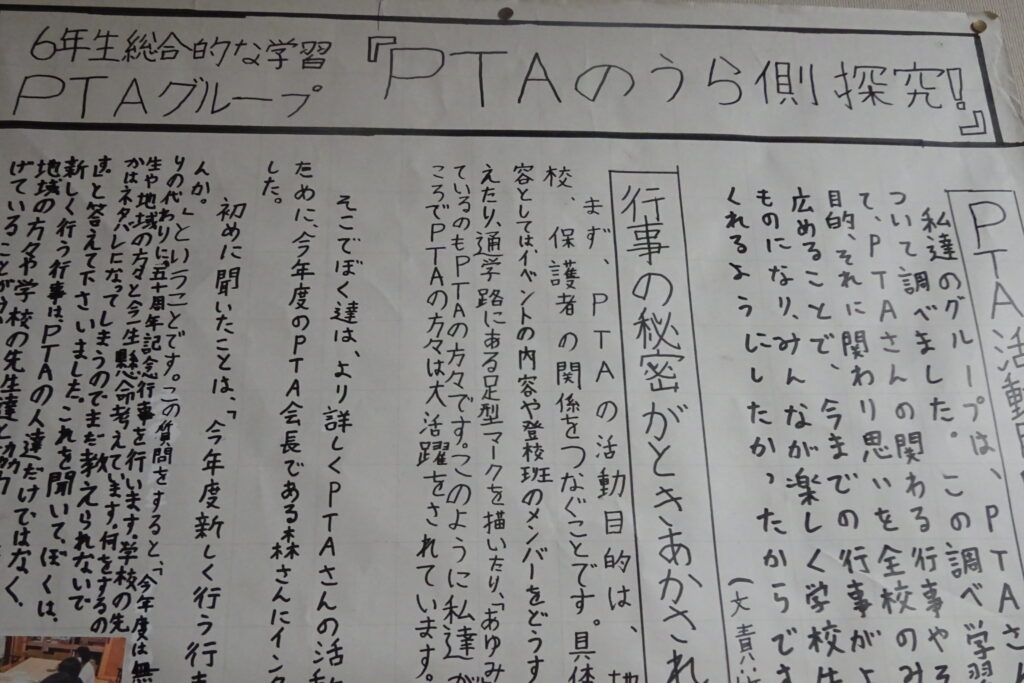 6年生総合的な学習
PTAグループ
『PTAのうら側探究!』
PTA活動
私達のグループは、PTAさ
ついて調べました。この調べ学習
て、PTAさんの関わる行事やそ
目的、それに関わり思いを全校のみ
広めることで、今までの行事がよ
ものになり、みんなが楽しく学校生
くれるようにしたかったからです
行事の秘密がときあかされ
まず、PTAの活動目的は、地
校、保護者の関係をつなぐことです。具体
容としては、イベントの内容や登校班のメンバーをどうす
えたり、通学路にある足型マークを描いたり、「あゆみ
ているのもPTAの方々です。このように私達が
ころでPTAの方々は大活躍をされています。
そこでぼく達は、より詳しくPTAさんの活
ために、今年度のPTA会長である森さんにイン
した。
初めに聞いたことは、「今年度新しく行う行
んか。」ということです。この質問をすると、「今年度は無
りの代わりに、五十周年記念行事を行います。学校の先
生や地域の方々と今一生懸命考えています。何をするの
かはネタバレになってしまうのでまだ教えられないで
す。」と答えて下さいました。これを聞いて、ぼくは、
新しく行う行事は、PTAの人達だけではなく、
地域の方々や学校の先生達と
げていることが